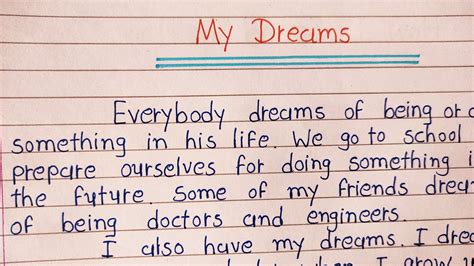 My Dreams
Everybody dreams of being or
something in his life. We go to school
prepare ourselves for doing something
the future. Some of my friends
of being doctors and engineers.
I also have my dreams. I
I grow